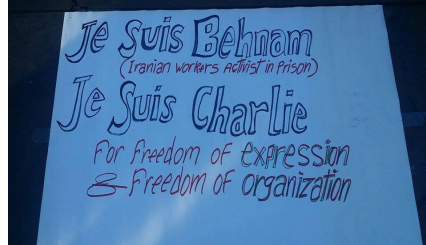 Je Suis Behnam
(Iranian Workers Activist in Prison)
Je Suis Charlie
For Freedom of expression
& Freedom of organization